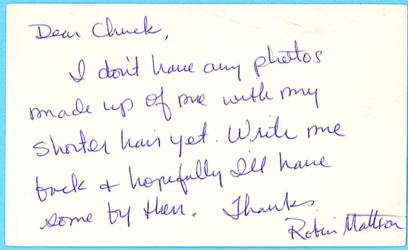 Dear Chuck,
I don't have any photos
made up of me with my
shorter hair yet. Write me
back & hopefully I'll have
some by then. Thanks.
Robin Mattson